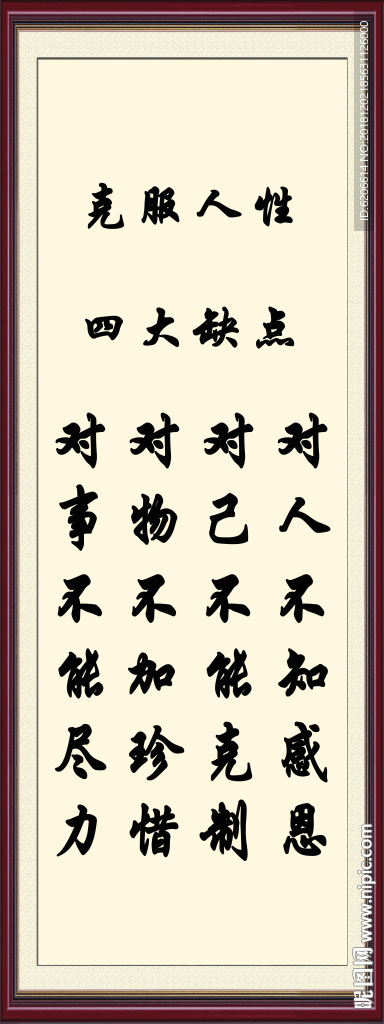 克服人性
四大缺点
对人不知感恩
对己不能克制
对物不加珍惜
对事不能尽力
ID:6206614 NO:20181202185631126000
昵图网 www.nipic.com